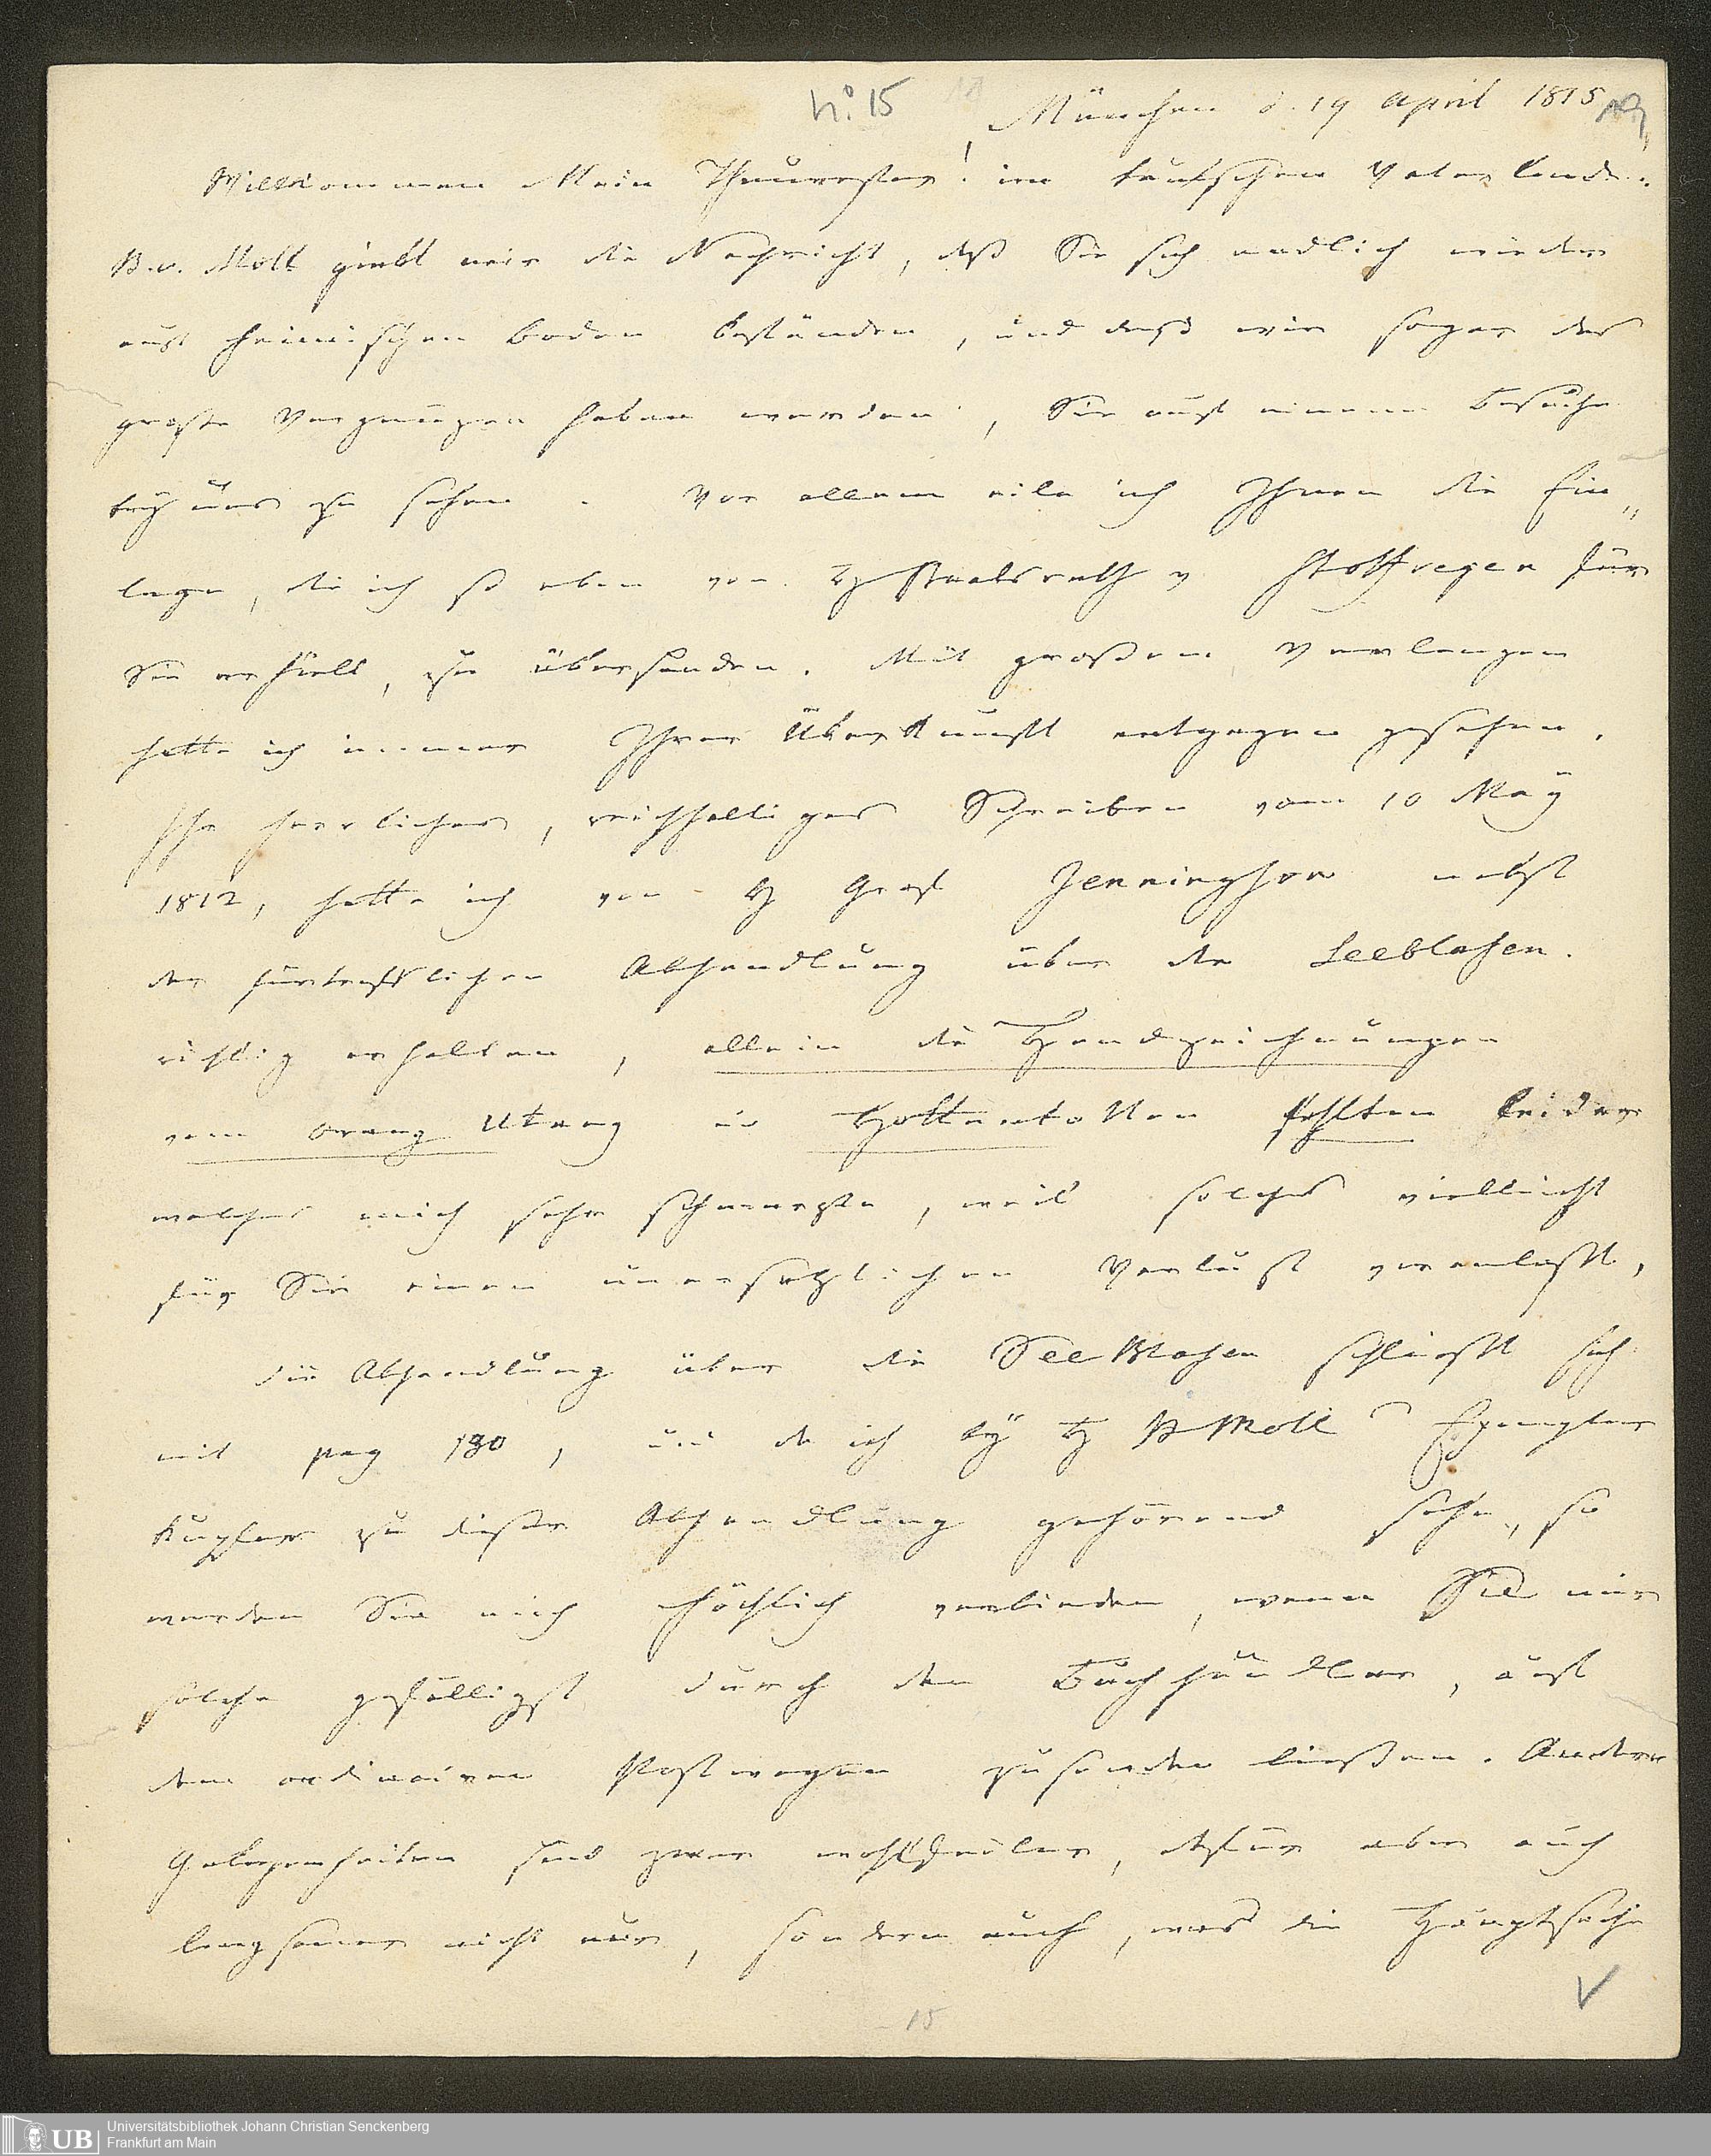 No. 15
München d. 19 April 1815
Willkommen Mein Theurester! im teutschen Vaterlande.
B. v. Moll giebt mir die Nachricht, daß Sie sich endlich wieder
auf heimischen Boden befänden, und daß wir sogar das
große Vergnügen haben werden, Sie auf einem Besuche
bey uns zu sehen. Vor allem eile ich Ihnen die Ein„
lage, die ich so eben von H Staatsrath v Stoffregen für
Sie erhielt, zu übersenden. Mit großem Verlangen
hatte ich immer Ihrer Überkunft entgegen gesehen.
Ihr herrliches, reichhaltiges Schreiben vom 10 May
1812, hatte ich von H Graf Jenninghon nebst
der fürtrefflichen Abhandlung über die Seeblasen.
richtig erhalten, allein die Handzeichnungen
vom Orang Utang u Hottentotten fehlten leider
welches mich sehr schmerzte, weil solches vielleicht
für Sie einen unersetzlichen Verlust veranlaßt.
Die Abhandlung über die See Blasen schließt sich
mit pag 180, und da ich bey H B Moll Exemplar
Kupfer zu dieser Abhandlung gehörend sehe, so
werden Sie mich höchlich verbinden, wenn Sie mir
solche gefälligst durch den Buchhändler, auf
dem ordinairen Postwagen zusenden ließen. Andere
Gelegenheiten sind zwar wohlfeiler, dafür aber auch
langsamer nicht nur, sondern auch, was die Hauptsache
15
Universitätsbibliothek Johann Christian Senckenberg
Frankfurt am Main
UB